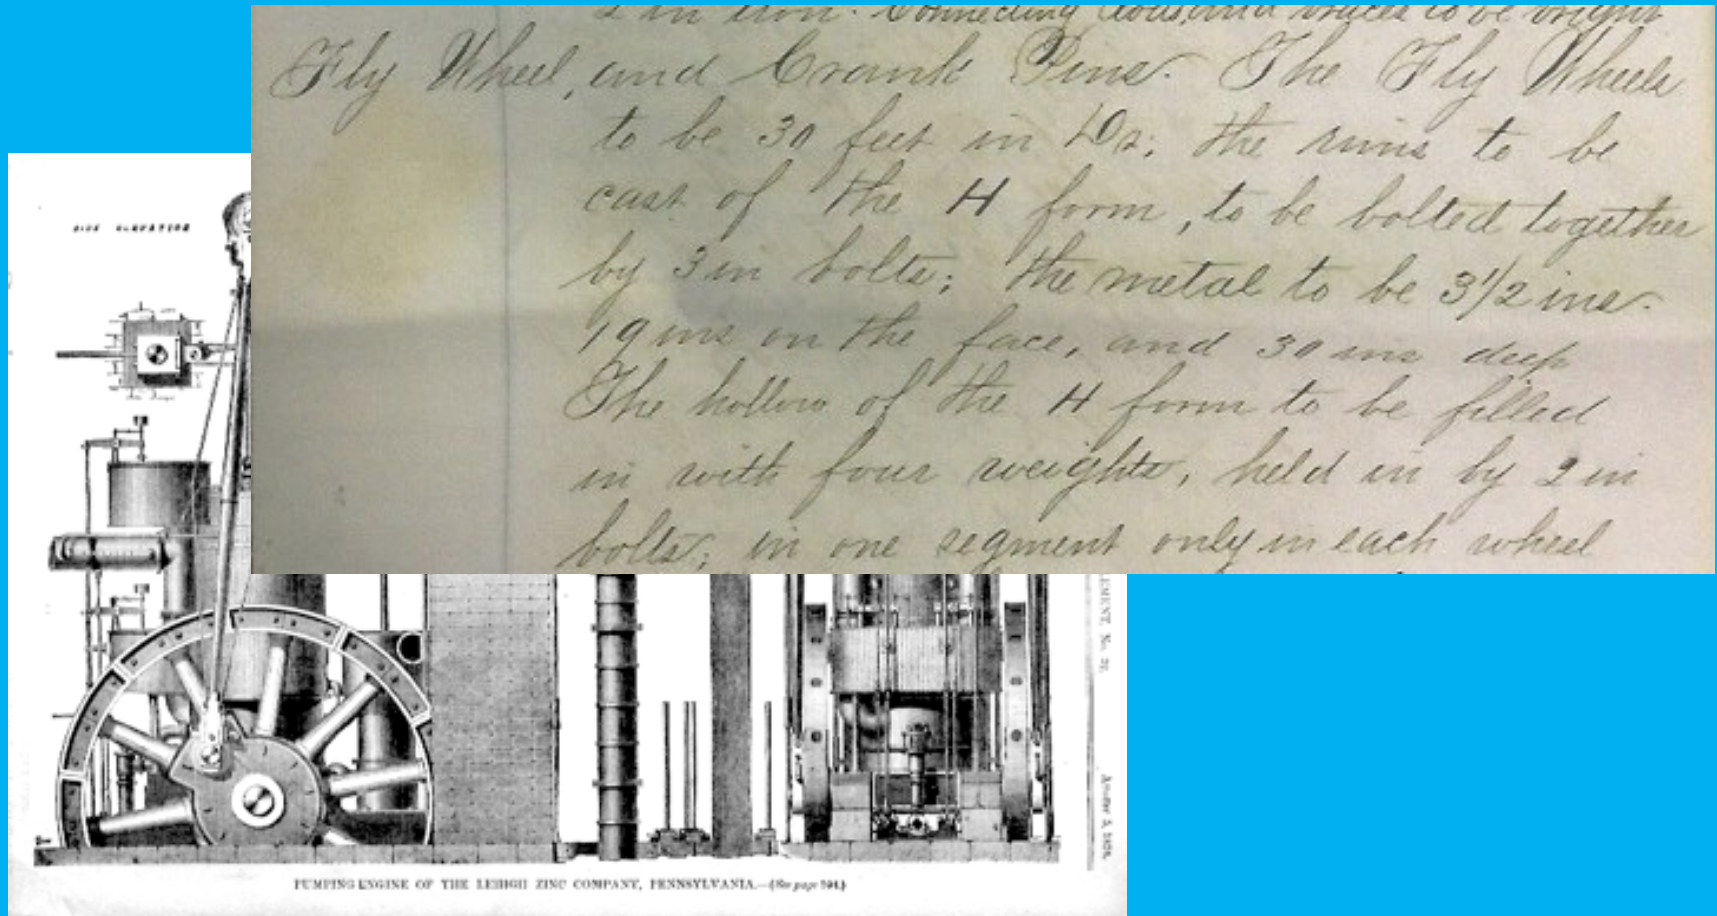 2 in iron. Connecting rods and braces to be bright
Fly Wheel, and Crank Pins. The Fly Wheels
to be 30 feet in Da; the rims to be
cast of the H form, to be bolted together
by 3 in bolts; the metal to be 3 1/2 ins.
19 ins on the face, and 30 ins deep
The hollow of the H form to be filled
in with four weights, held in by 2 in
bolts; in one segment only in each wheel
SIDE ELEVATION
EMENT, No. 
PUMPING ENGINE OF THE LEHIGH ZINC COMPANY, PENNSYLVANIA.—(See page 594.)